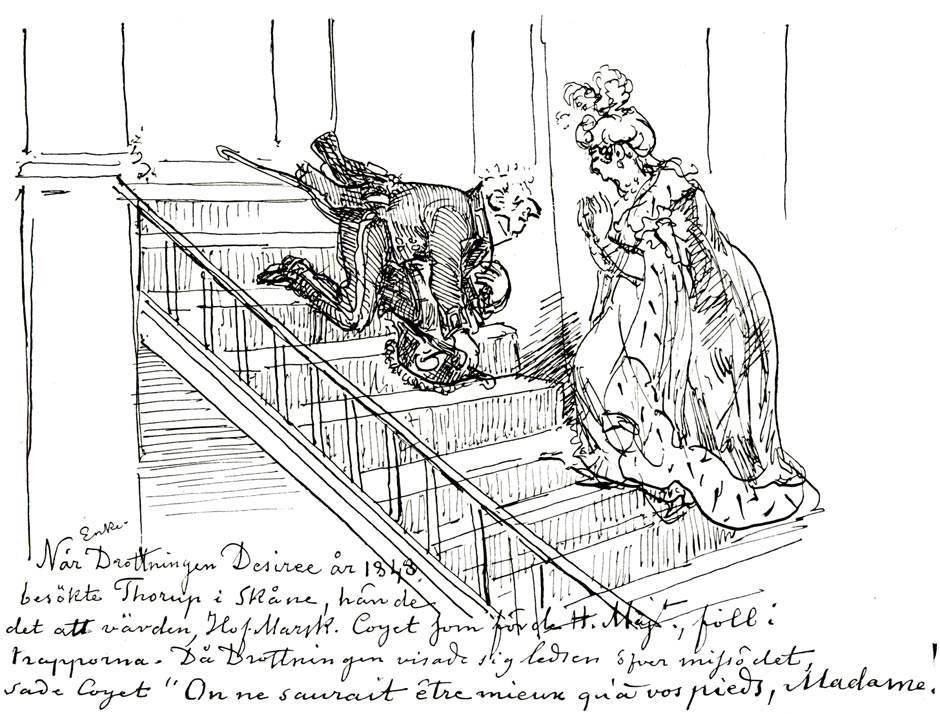 Enke-
När Drottningen Desiree år 1848
besökte Thorup i Skåne, hände
det att värden, Hof.Marsk. Coyet som förde H. Maj:t., föll i
trapporna. Då Drottningen visade sig ledsen öfver missödet,
sade Coyet "On ne saurait être mieux qu'à vos pieds, Madame!